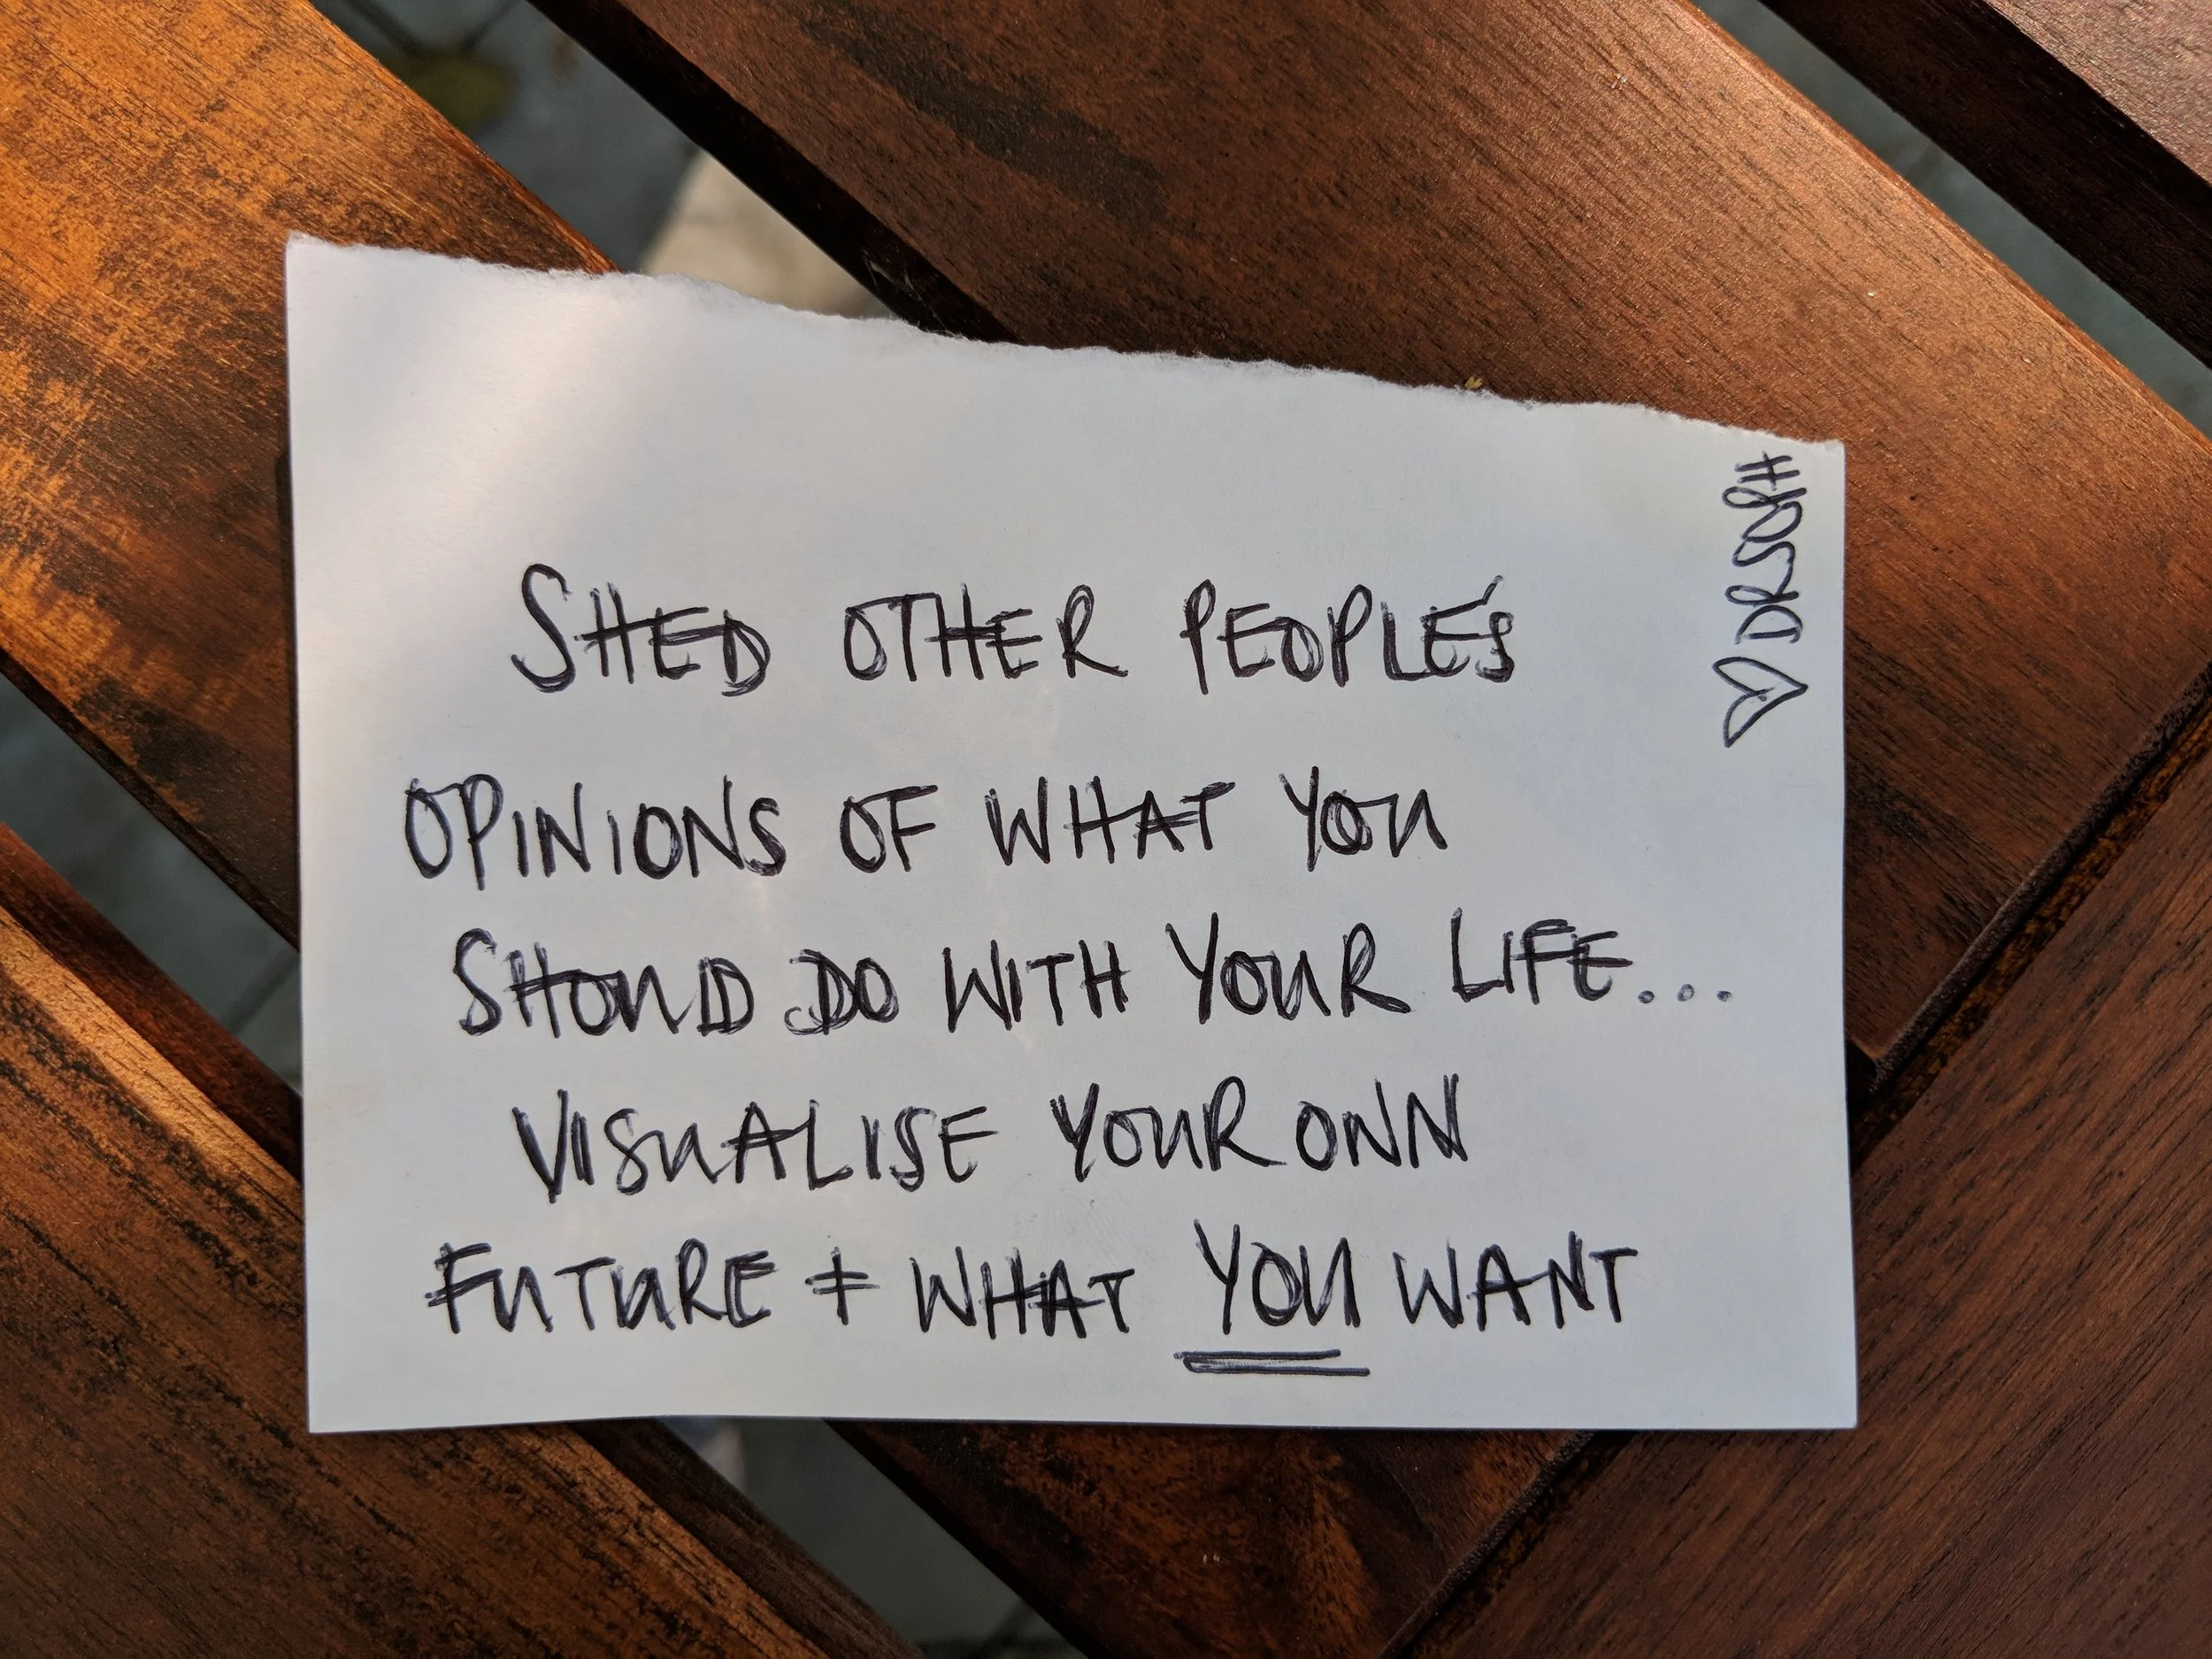 SHED OTHER PEOPLE'S
OPINIONS OF WHAT YOU
SHOULD DO WITH YOUR LIFE...
VISUALISE YOUR OWN
FUTURE + WHAT YOU WANT
♡ DRSOPH